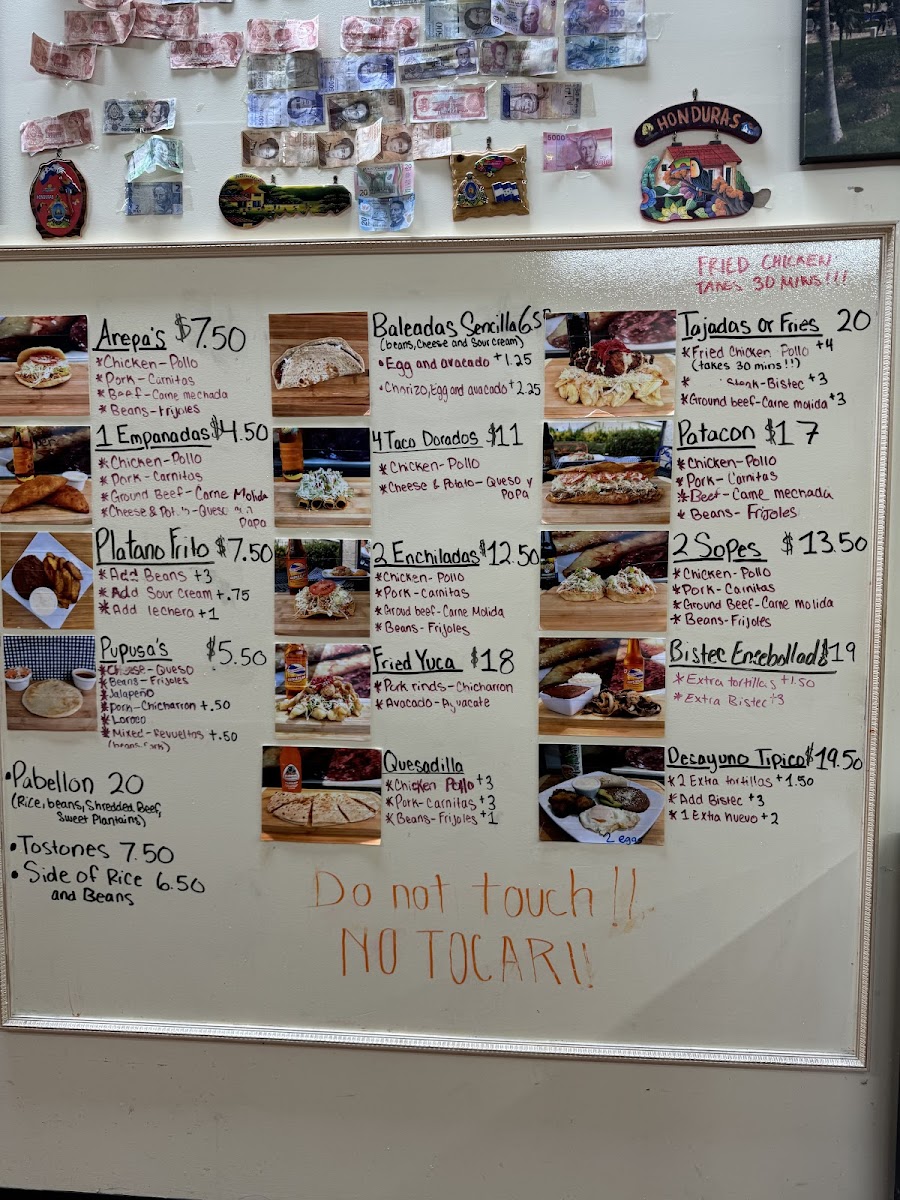 HONDURAS
5000
FRIED CHICKEN
TAKES 30 MINS!!!
Arepa's $7.50
*Chicken-Pollo
*Pork-Carnitas
*Beef-Carne mechada
*Beans-Frijoles
1 Empanadas $4.50
*Chicken-Pollo
*Pork-Carnitas
*Ground Beef-Carne Molida
*Cheese & -Queso
Papa
Platano Frito $7.50
*Add Beans +3
*Add Sour Cream +.75
*Add lechera +1
Pupusa's $5.50
*Cheese-Queso
*Beans-Frijoles
*Jalapeño
*Pork-Chicharron +.50
*Loroco
*Mixed-Revueltas +.50
(beans, Pork)
•Pabellon 20
(Rice, beans, Shredded Beef,
Sweet Plantains)
•Tostones 7.50
•Side of Rice 6.50
and Beans
Baleadas Sencilla 6.5
(beans, cheese and sour cream)
•Egg and avacado +1.25
•Chorizo, Egg and avacado +2.25
4 Taco Dorados $11
*Chicken-Pollo
*Cheese & Potato-Queso y
Papa
2 Enchiladas $12.50
*Chicken-Pollo
*Pork-Carnitas
*Groud beef-Carne Molida
*Beans-Frijoles
Fried Yuca $18
*Pork rinds-Chicharron
*Avocado-Aguacate
Quesadilla
*Chicken Pollo +3
*Pork-Carnitas +3
*Beans-Frijoles +1
Tajadas or Fries 20
*Fried Chicken Pollo +4
(takes 30 mins!!)
* -Bistec +3
*Ground beef-Carne molida +3
Patacon $17
*Chicken-Pollo
*Pork-Carnitas
*Beef-Carne mechada
*Beans-Frijoles
2 Sopes $13.50
*Chicken-Pollo
*Pork-Carnitas
*Ground Beef-Carne molida
*Beans-Frijoles
Bistec Encebollado $19
*Extra tortillas +1.50
*Extra Bistec +3
Desayuno Tipico $19.50
*2 Extra tortillas +1.50
*Add Bistec +3
*1 Extra huevo +2
2 eggs
Do not touch!!
NO TOCAR!!